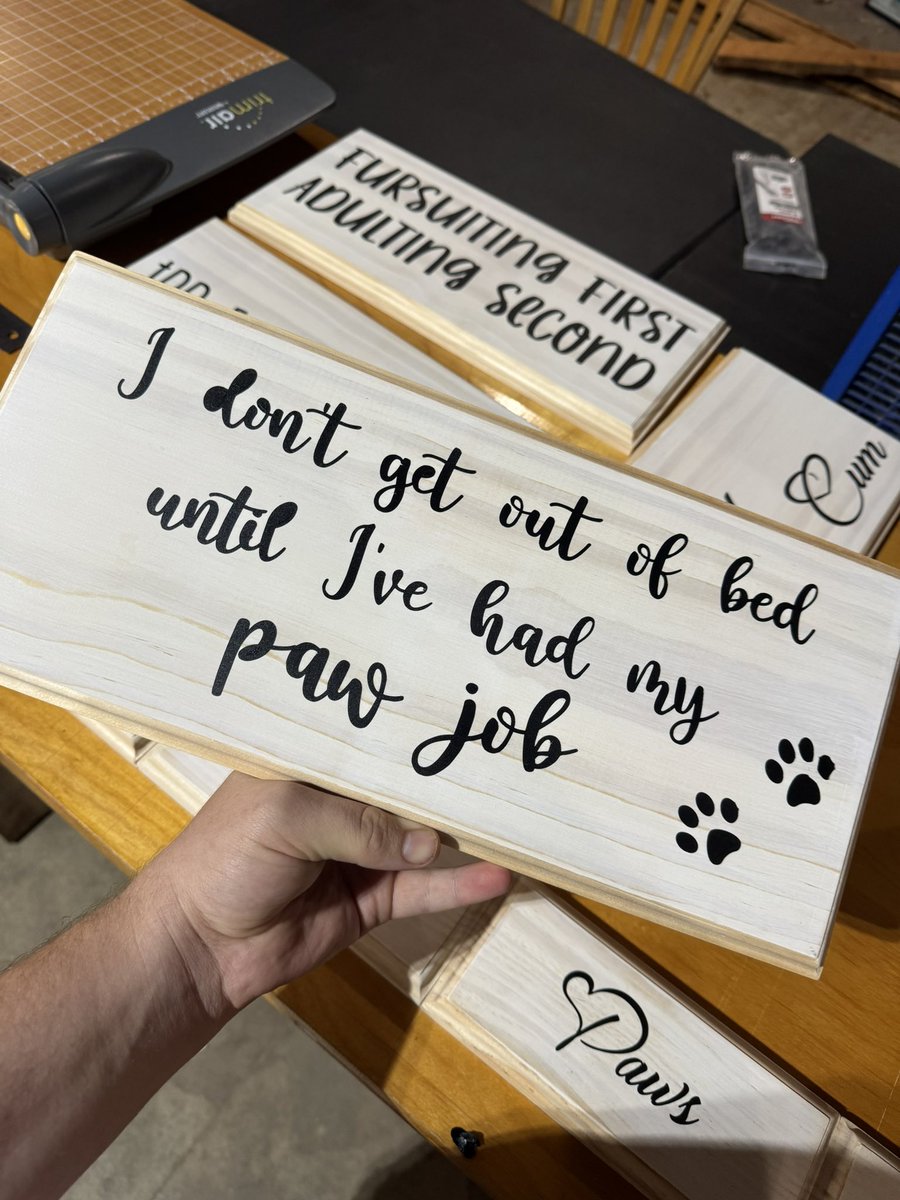 trimair
FURSUITING FIRST
ADULTING SECOND
I don't get out of bed
until I've had my
paw job
Cum
Paws